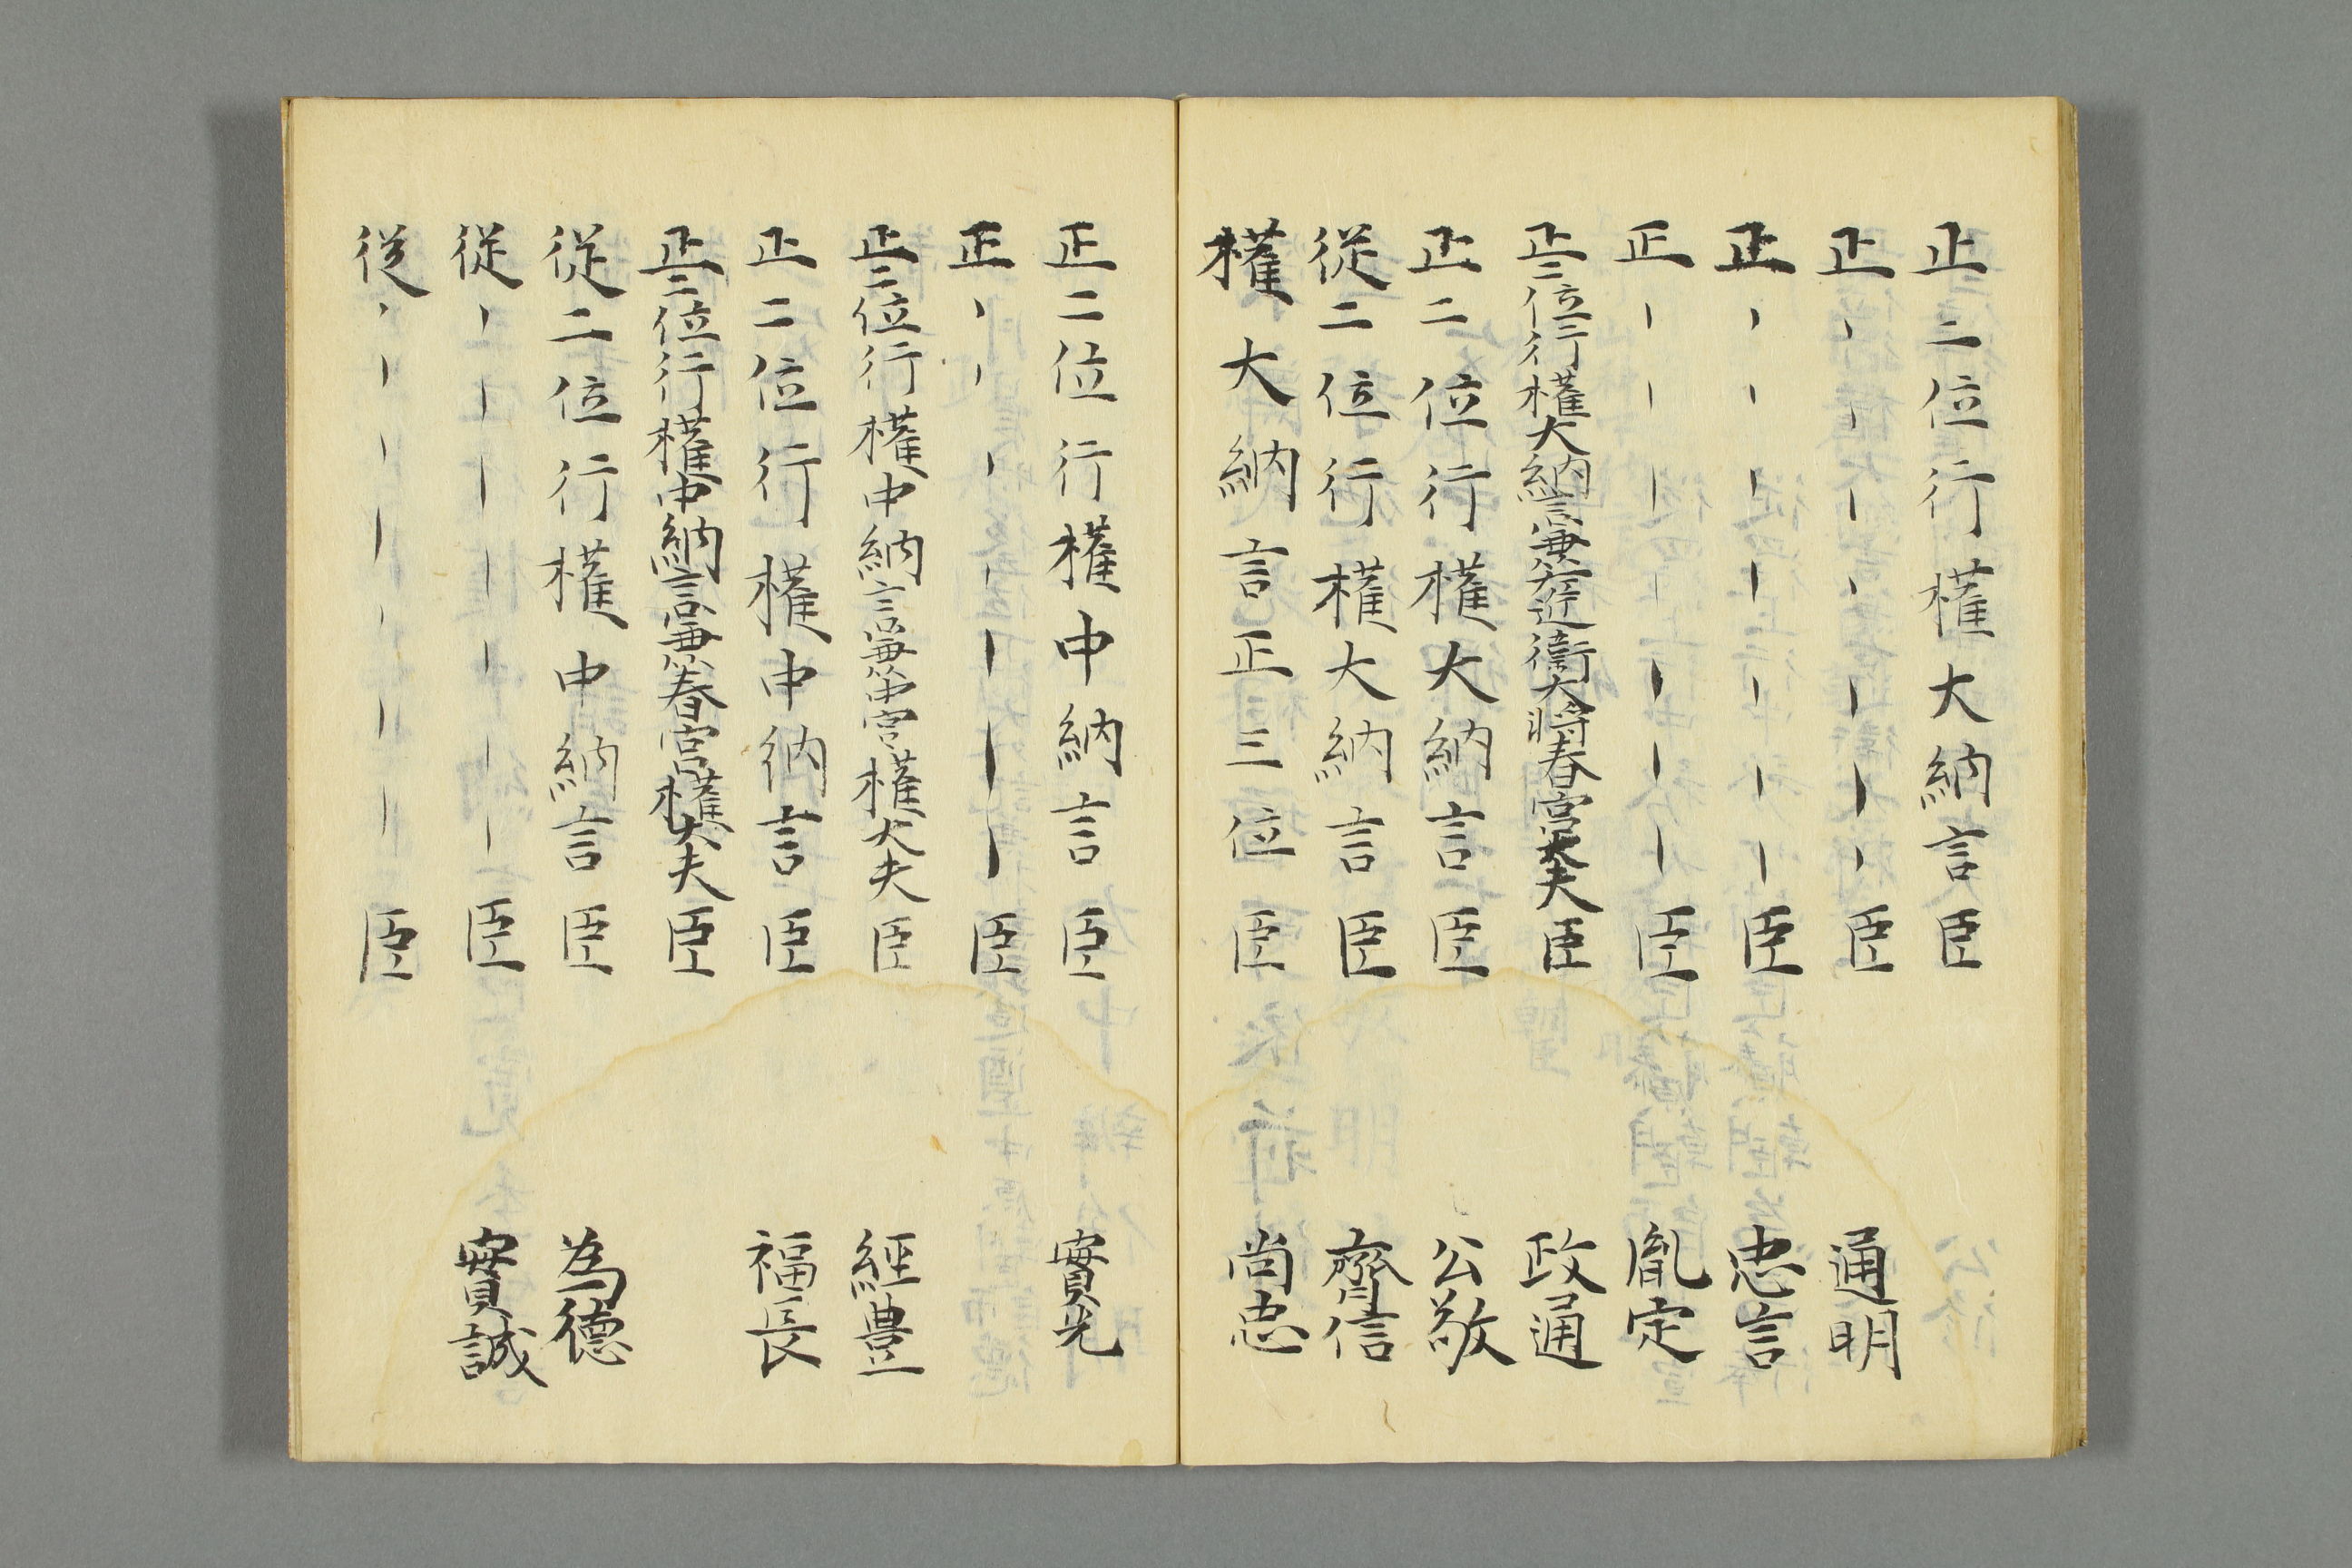 正二位行權大納言臣
正、、、、、、、臣 通明
正、、、、、、、臣 忠言
正、、、、、、、臣 胤定
正二位行權大納言兼左近衛大將春宮大夫臣 政通
正二位行權大納言臣 公敬
從二位行權大納言臣 齊信
權大納言正三位臣 尚忠
正二位行權中納言臣 實光
正、、、、、、臣
正二位行權中納言兼中宮權大夫臣 經豊
正二位行權中納言臣 福長
正二位行權中納言兼春宮權大夫臣
從二位行權中納言臣 為德
從、、、、、、、臣 實誠
從、、、、、、、臣